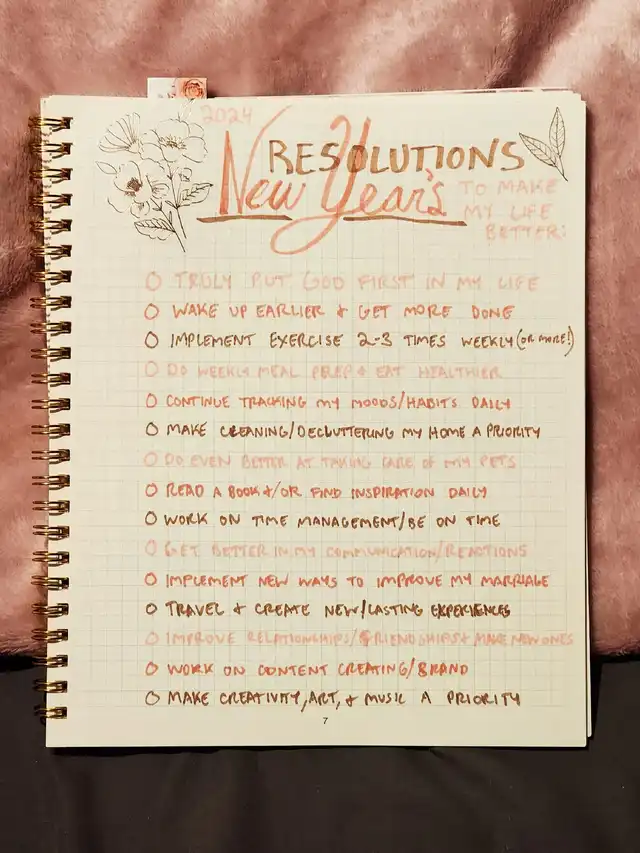 2024
RESOLUTIONS
New Year's
TO MAKE
MY LIFE
BETTER:
TRULY PUT GOD FIRST IN MY LIFE
WAKE UP EARLIER & GET MORE DONE
IMPLEMENT EXERCISE 2-3 TIMES WEEKLY (OR MORE!)
DO WEEKLY MEAL PREP & EAT HEALTHIER
CONTINUE TRACKING MY MOODS/HABITS DAILY
MAKE CLEANING/DECLUTTERING MY HOME A PRIORITY
DO EVEN BETTER AT TAKING CARE OF MY PETS
READ A BOOK &/OR FIND INSPIRATION DAILY
WORK ON TIME MANAGEMENT/BE ON TIME
GET BETTER IN MY COMMUNICATION/REACTIONS
IMPLEMENT NEW WAYS TO IMPROVE MY MARRIAGE
TRAVEL & CREATE NEW/LASTING EXPERIENCES
IMPROVE RELATIONSHIPS/FRIENDSHIPS & MAKE NEW ONES
WORK ON CONTENT CREATING/BRAND
MAKE CREATIVITY, ART, & MUSIC A PRIORITY
7